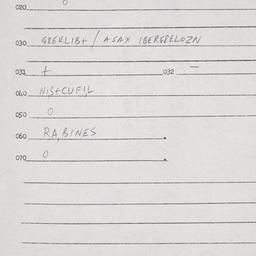 020 0
030 GBEKLIBt / ASAX IBERGPELOZN
031 t 032 —
040 NIStCUFIL
050 0
060 RA, BINES
070 0